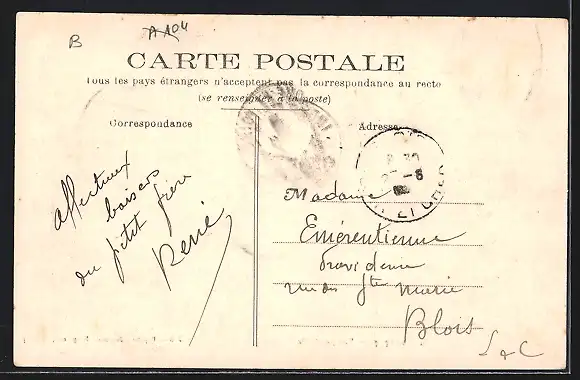 B
A 104
CARTE POSTALE
Tous les pays étrangers n'acceptent pas la correspondance au recto
(se renseigner à la poste)
Correspondance
Adresse
affectueux
baisers
du petit frère
René
Madame
Emérentienne
Providence
rue des Stes Marie
Blois
L & C